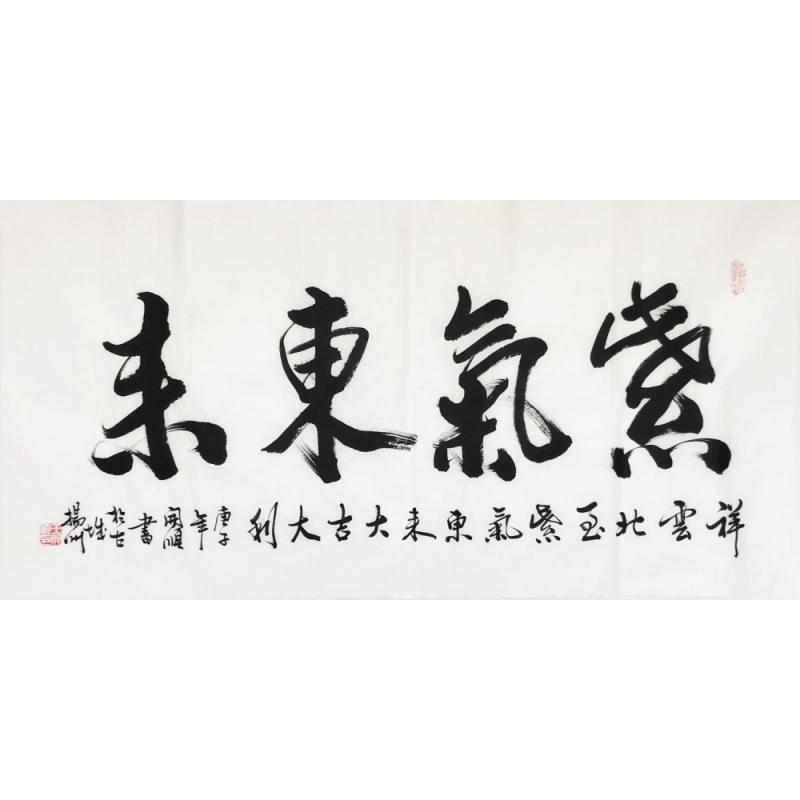 紫氣東来
祥雲北至紫氣東来大吉大利
庚子年開順書於古城揚州